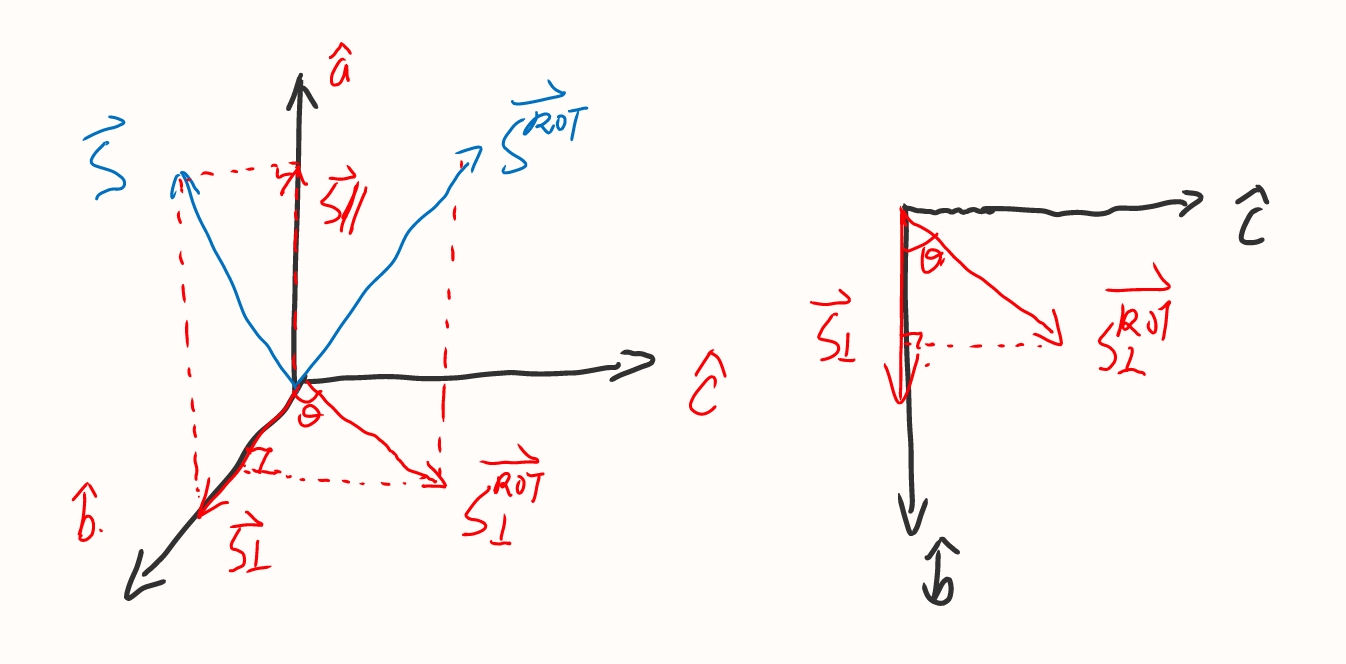 â
S⃗
S⃗ᴿᴼᵀ
S⃗∥
ĉ
θ
b̂.
S⃗⊥
S⃗⊥ᴿᴼᵀ
ĉ
θ
S⃗⊥
S⃗⊥ᴿᴼᵀ
b̂